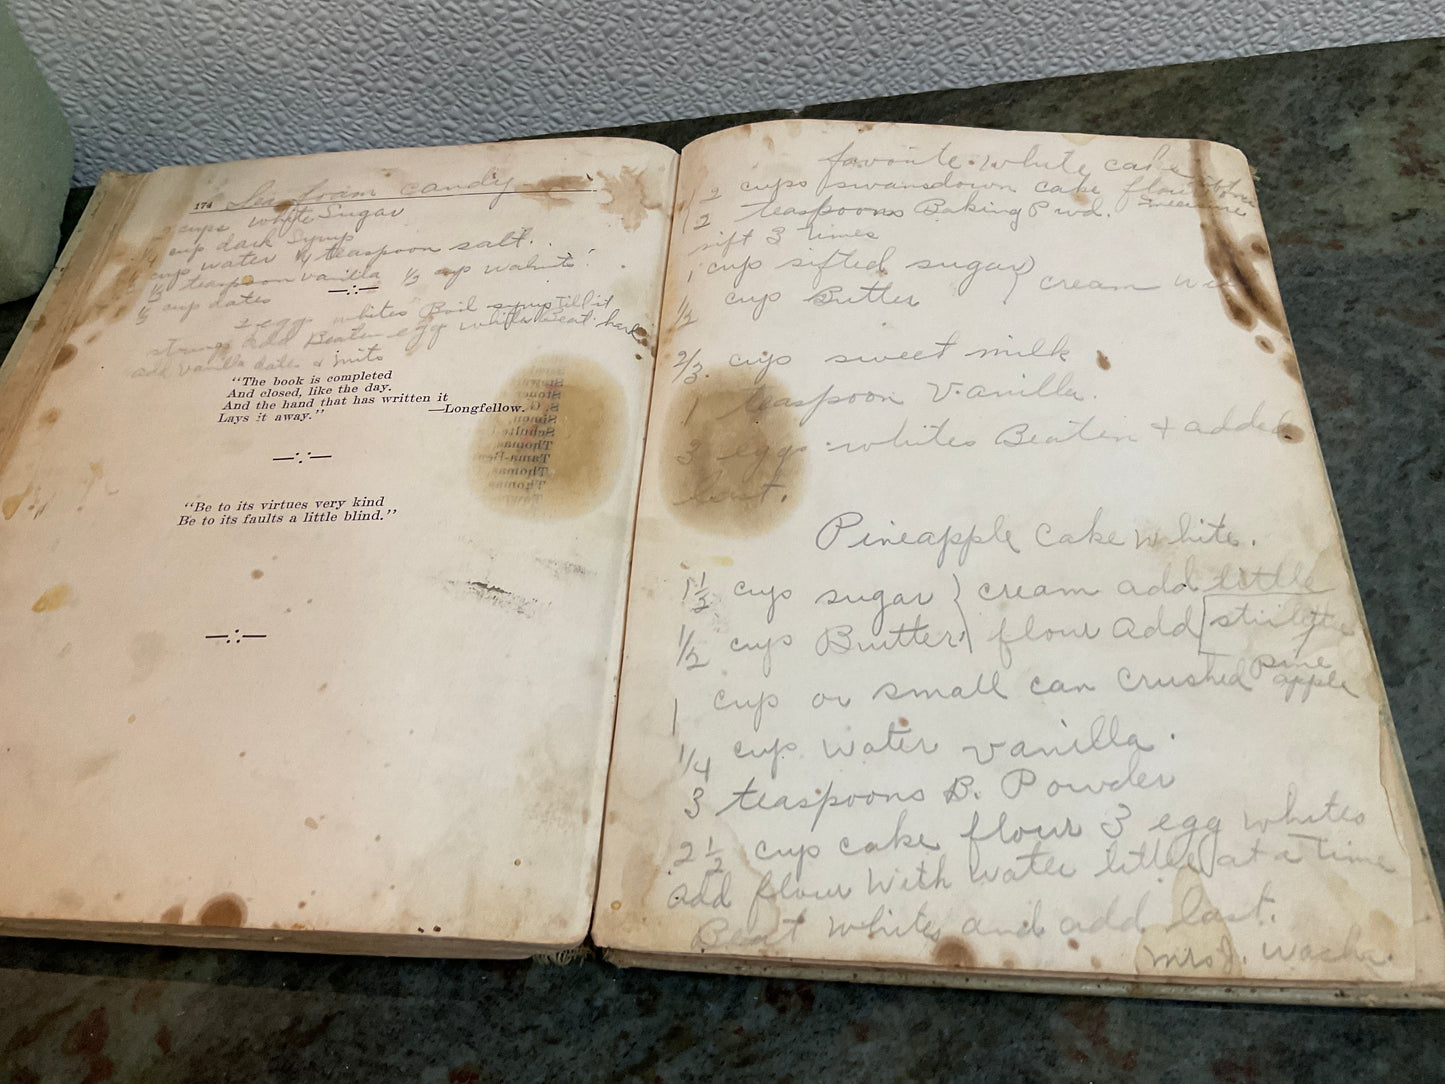 174 Sea foam candy
2 cups white Sugar
1/4 cup dark Syrup
cup water 1/4 teaspoon salt.
1/2 teaspoon vanilla 1/2 cup walnuts
1/2 cup dates
2 eggs whites Boil syrup till it
strings add Beaten egg whites Beat hard
add vanilla dates & nuts
"The book is completed
And closed, like the day.
And the hand that has written it
Lays it away."
—Longfellow.
"Be to its virtues very kind
Be to its faults a little blind."
Schulte
Thomas
Tama-Ben
Thomas
Thomas
favorite white cake
2 cups swansdown cake flour
2 teaspoons Baking Pwd.
sift 3 times
1 cup sifted sugar } cream
1/2 cup Butter
2/3 cup sweet milk
1 teaspoon Vanilla.
3 eggs whites Beaten + added
last.
Pineapple Cake White.
1 1/2 cups sugar } cream add little
1/2 cup Butter } flour add
1 cup or small can crushed pine
apple
1/4 cup water vanilla.
3 teaspoons B. Powder
2 1/2 cup cake flour 3 egg whites
add flour with water little at a time
Beat whites and add last.
Mrs J.